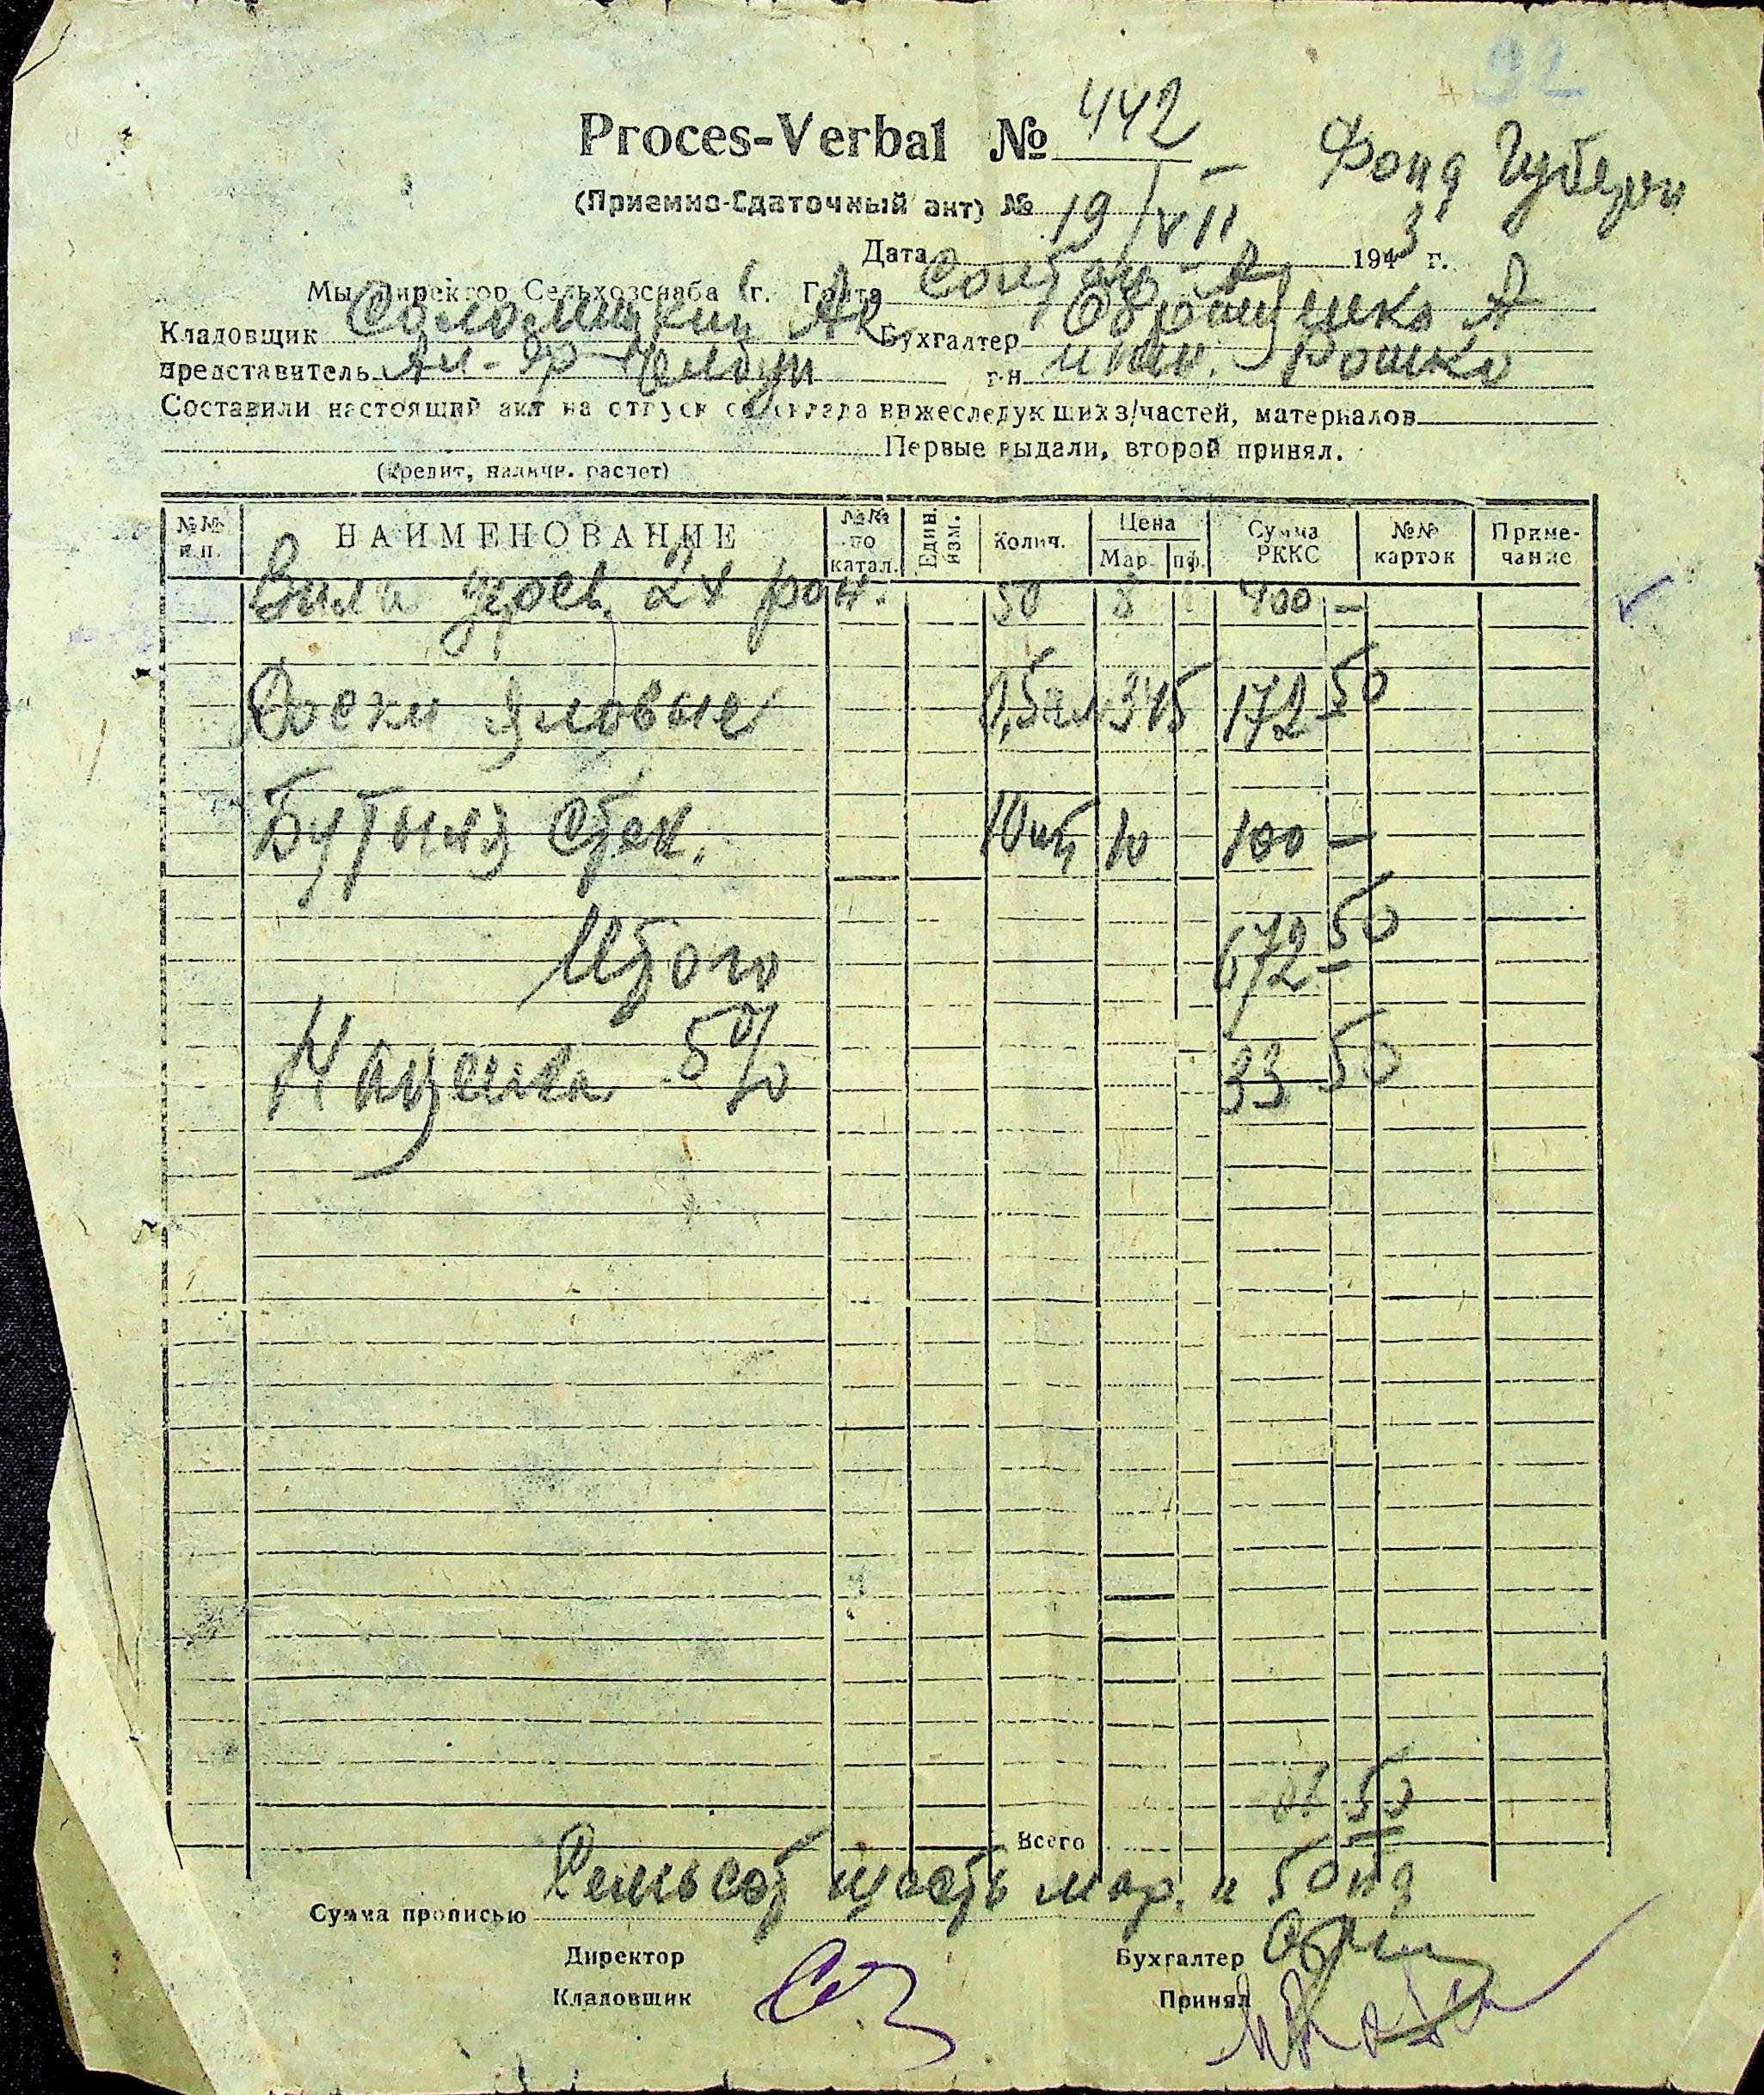 92
Proces-Verbal № 442
Фонд Губерн
(Приемно-Сдаточный акт) № 19/VII
Дата 1943 г.
Мы директор Сельхозснаба г.
Кладовщик Соломицкий Бухгалтер
представитель г-н Рошко
Составили настоящий акт на отпуск со склада нижеследующих з/частей, материалов
Первые выдали, второй принял.
(Кредит, наличн. расчет)
№№ п.п. НАИМЕНОВАНИЕ №№ по катал. Един. изм. Колич. Цена Мар. пф. Сумма РККС №№ карток Приме-чание
Вилы 2х рож. 50 8 400 —
Доски яловые 0,5 345 172 50
Бутылз стек. 10 шт 10 100 —
Итого 672 50
Наценка 5% 33 50
Всего 06 50
Сумма прописью Семьсот шесть мар. и 50 пф
Директор Бухгалтер
Кладовщик Принял